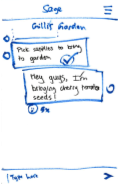 Sage
Gillit Garden
Pick supplies to bring
to garden
Hey guys, I'm
bringing cherry tomato
seeds!
Type here